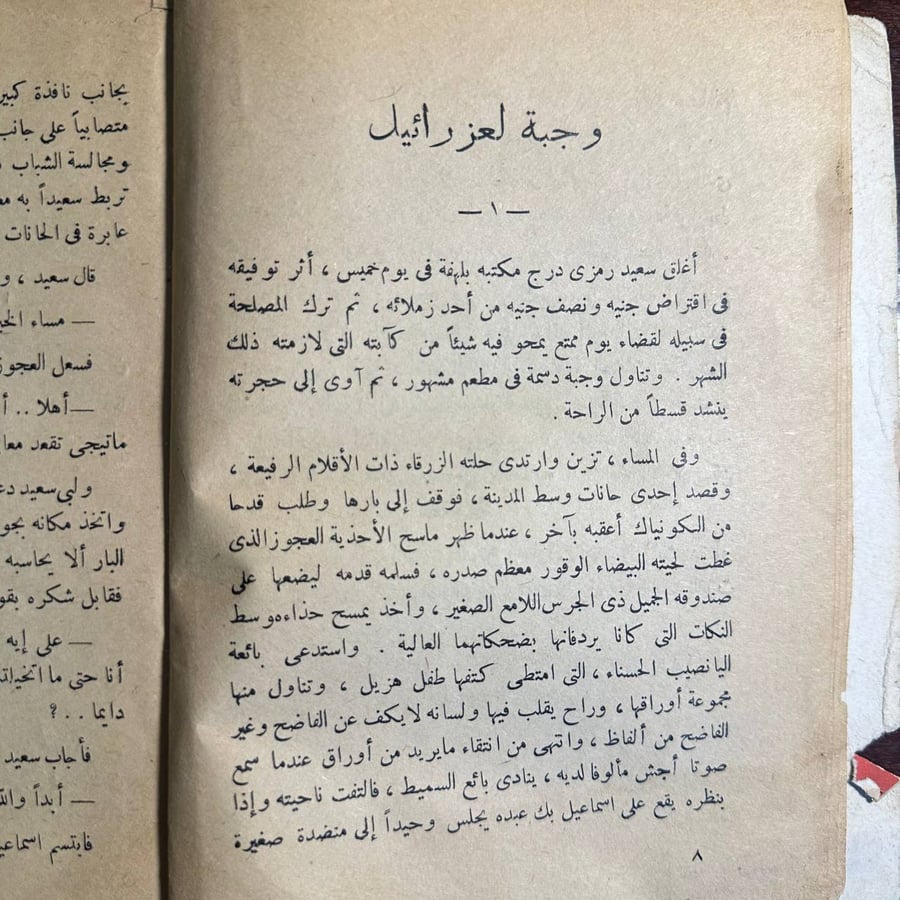 وجبة لعزرائيل
— ١ —
أغلق سعيد رمزى درج مكتبه بلهفة فى يوم خميس ، أثر توفيقه
فى اقتراض جنيه ونصف جنيه من أحد زملائه ، ثم ترك المصلحة
فى سبيله لقضاء يوم ممتع يمحو فيه شيئاً من كآبته التى لازمته ذلك
الشهر . وتناول وجبة دسمة فى مطعم مشهور ، ثم آوى إلى حجرته
ينشد قسطاً من الراحة .
وفى المساء ، تزين وارتدى حلته الزرقاء ذات الأقلام الرفيعة ،
وقصد إحدى حانات وسط المدينة ، فوقف إلى بارها وطلب قدحا
من الكونياك أعقبه بآخر ، عندما ظهر ماسح الأحذية العجوز الذى
غطت لحيته البيضاء الوقور معظم صدره ، فسلمه قدمه ليضعها على
صندوقه الجميل ذى الجرس اللامع الصغير ، وأخذ يمسح حذاءه وسط
النكات التى كانا يردفانها بضحكاتهما العالية . واستدعى بائعة
اليانصيب الحسناء ، التى امتطى كتفها طفل هزيل ، وتناول منها
مجموعة أوراقها ، وراح يقلب فيها ولسانه لا يكف عن الفاضح وغير
الفاضح من ألفاظ ، وانتهى من انتقاء مايريد من أوراق عندما سمع
صوتا أجش مألوفا لديه ، ينادى بائع السميط ، فالتفت ناحيته وإذا
بنظره يقع على اسماعيل بك عبده يجلس وحيداً إلى منضدة صغيرة
٨
بجانب نافذة
متصابياً على جانب
ومجالسة الشباب
تربط سعيداً به
عابرة فى الحانات
قال سعيد ، و
— مساء
فسعل العجوز
— أهلا . . أ
ماتيجى تقعد معا
ولبى سعيد
واتخذ مكانه
البار ألا يحاسبه
فقابل شكره
— على إيه
أنا حتى ما
دايما . . ؟
فأجاب سعيد
— أبداً
فابتسم